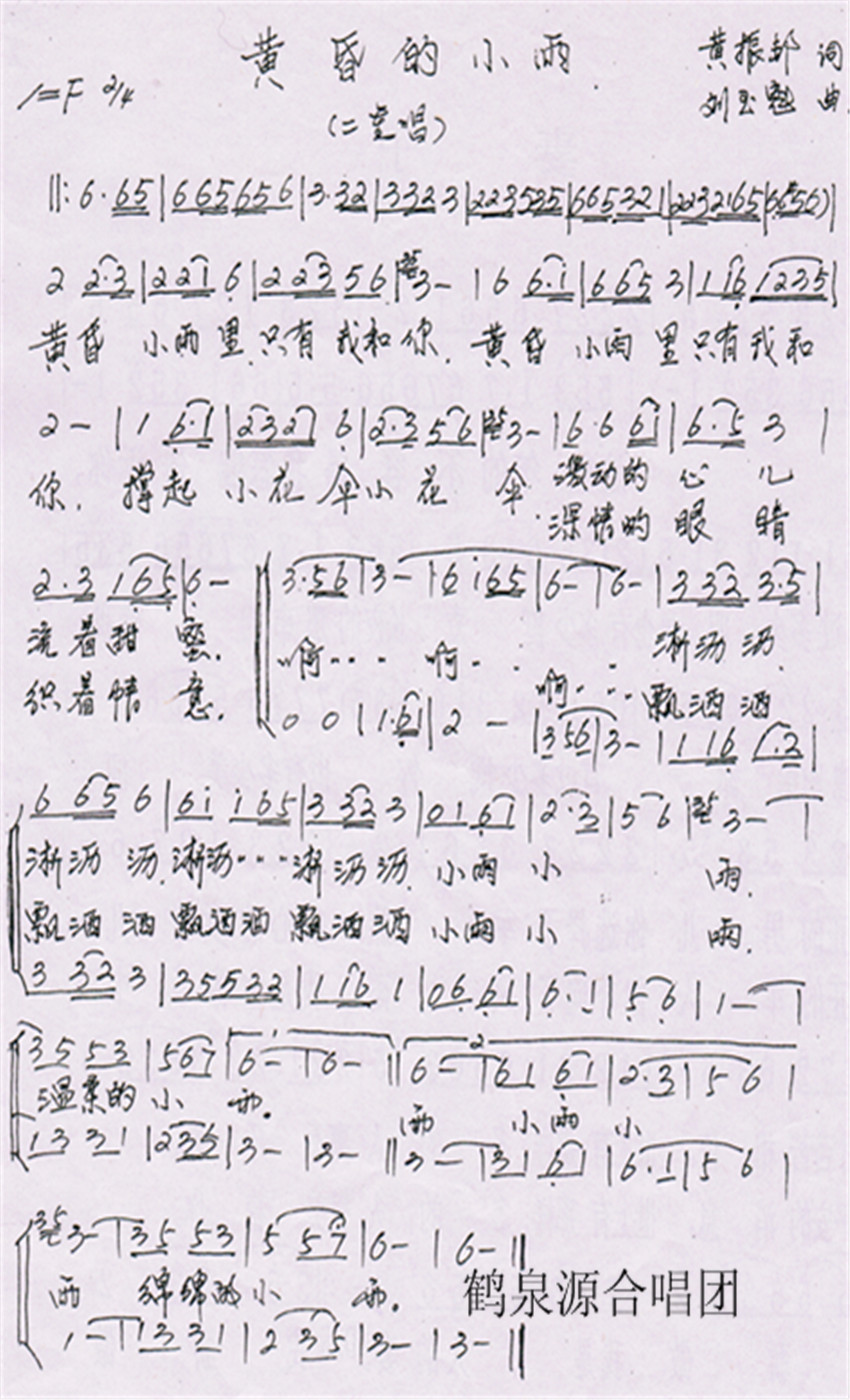 黄昏的小雨
黄振邦 词
1=F 2/4
(二重唱)
刘玉 曲
‖: 6· 65 | 665 656 | 3· 32 | 332 3 | 223 535 | 665 321 | 223 2165 | 6656) |
2 2·3 | 221 6 | 223 56 | 3 - | 6 6·1 | 665 3 | 116 1235 |
黄昏 小雨里只有我和你. 黄昏 小雨里只有我和
2 - | 1 6·1 | 2327 6 | 2·3 56 | 3 - | 6·6 61 | 6·5 3 |
你. 撑起 小花 伞小花 伞 激动的 心儿
深情的 眼睛
2·3 165 | 6 -
3·56 | 3 - | 6 165 | 6 - | 6 - | 332 3·5 |
流着甜 蜜.
啊... 啊... 淅沥沥.
织着情 意.
啊... 飘洒洒
0 0 | 1·61 | 2 - | 356 | 3 - | 116 1·2 |
6 65 6 | 61 165 | 3 32 3 | 01 61 | 2·3 | 5 6 | 3 - |
淅沥 沥.淅沥...淅沥沥.小雨 小 雨.
飘洒 洒 飘洒洒 飘洒洒 小雨 小 雨.
3 32 3 | 355 32 | 116 1 | 06 61 | 6·1 | 5 6 | 1 - |
35 53 | 567 | 6 - | 6 - ‖ 6 - | 61 61 | 2·3 | 5 6 |
温柔的 小 雨. 雨 小雨 小
13 31 | 235 | 3 - | 3 - ‖ 3 - | 31 61 | 6·1 | 5 6 |
3 - | 35 53 | 5 57 | 6 - | 6 - ‖
雨 绵绵的小 雨.
鹤泉源合唱团
1 - | 13 31 | 2 35 | 3 - | 3 - ‖